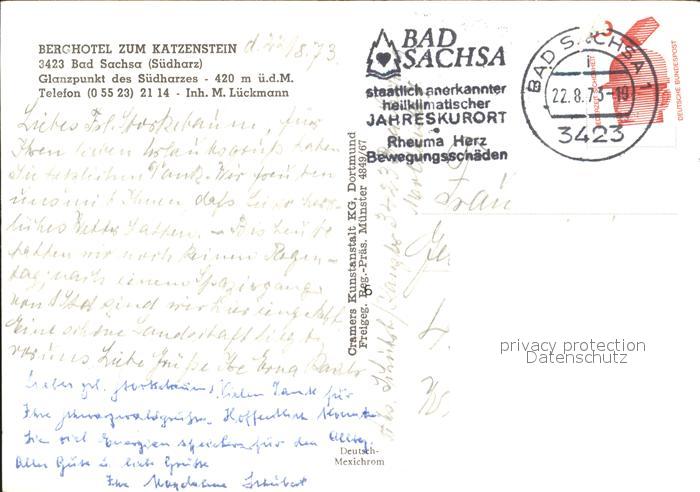 BERGHOTEL ZUM KATZENSTEIN
3423 Bad Sachsa (Südharz)
Glanzpunkt des Südharzes - 420 m ü.d.M.
Telefon (0 55 23) 21 14 - Inh. M. Lückmann
d. 22/8.73.
Liebes Frl. Storkebaum, für
Ihren lieben Urlaubsgruß haben
Sie herzlichen Dank. Wir freuten
uns mit Ihnen daß Sie so herr-
liches Wetter hatten. - Bis heute
hatten wir noch keinen Regen-
tag, nach einem Spaziergang
von 1 Std sind wir hier eingekehrt
Eine schöne Landschaft liegt
vor uns Liebe Grüße Ihre Erna
Liebes Frl. Storkebaum, Vielen Dank für
Ihre Schwarzwaldgrüße. Hoffentlich konnten
Sie viel Energien speichern für den Alltag.
Alles Gute u. liebe Grüße
Ihre Magdalene Schubert
Cramers Kunstanstalt KG, Dortmund
Freigeg. Reg.-Präs. Münster 4849/67
6
Deutsch-
Mexichrom
BAD
SACHSA
staatlich anerkannter
heilklimatischer
JAHRESKURORT
Rheuma Herz
Bewegungsschäden
BAD SACHSA 1
22.8.73-19
3423
DEUTSCHE BUNDESPOST
Frau
privacy protection
Datenschutz